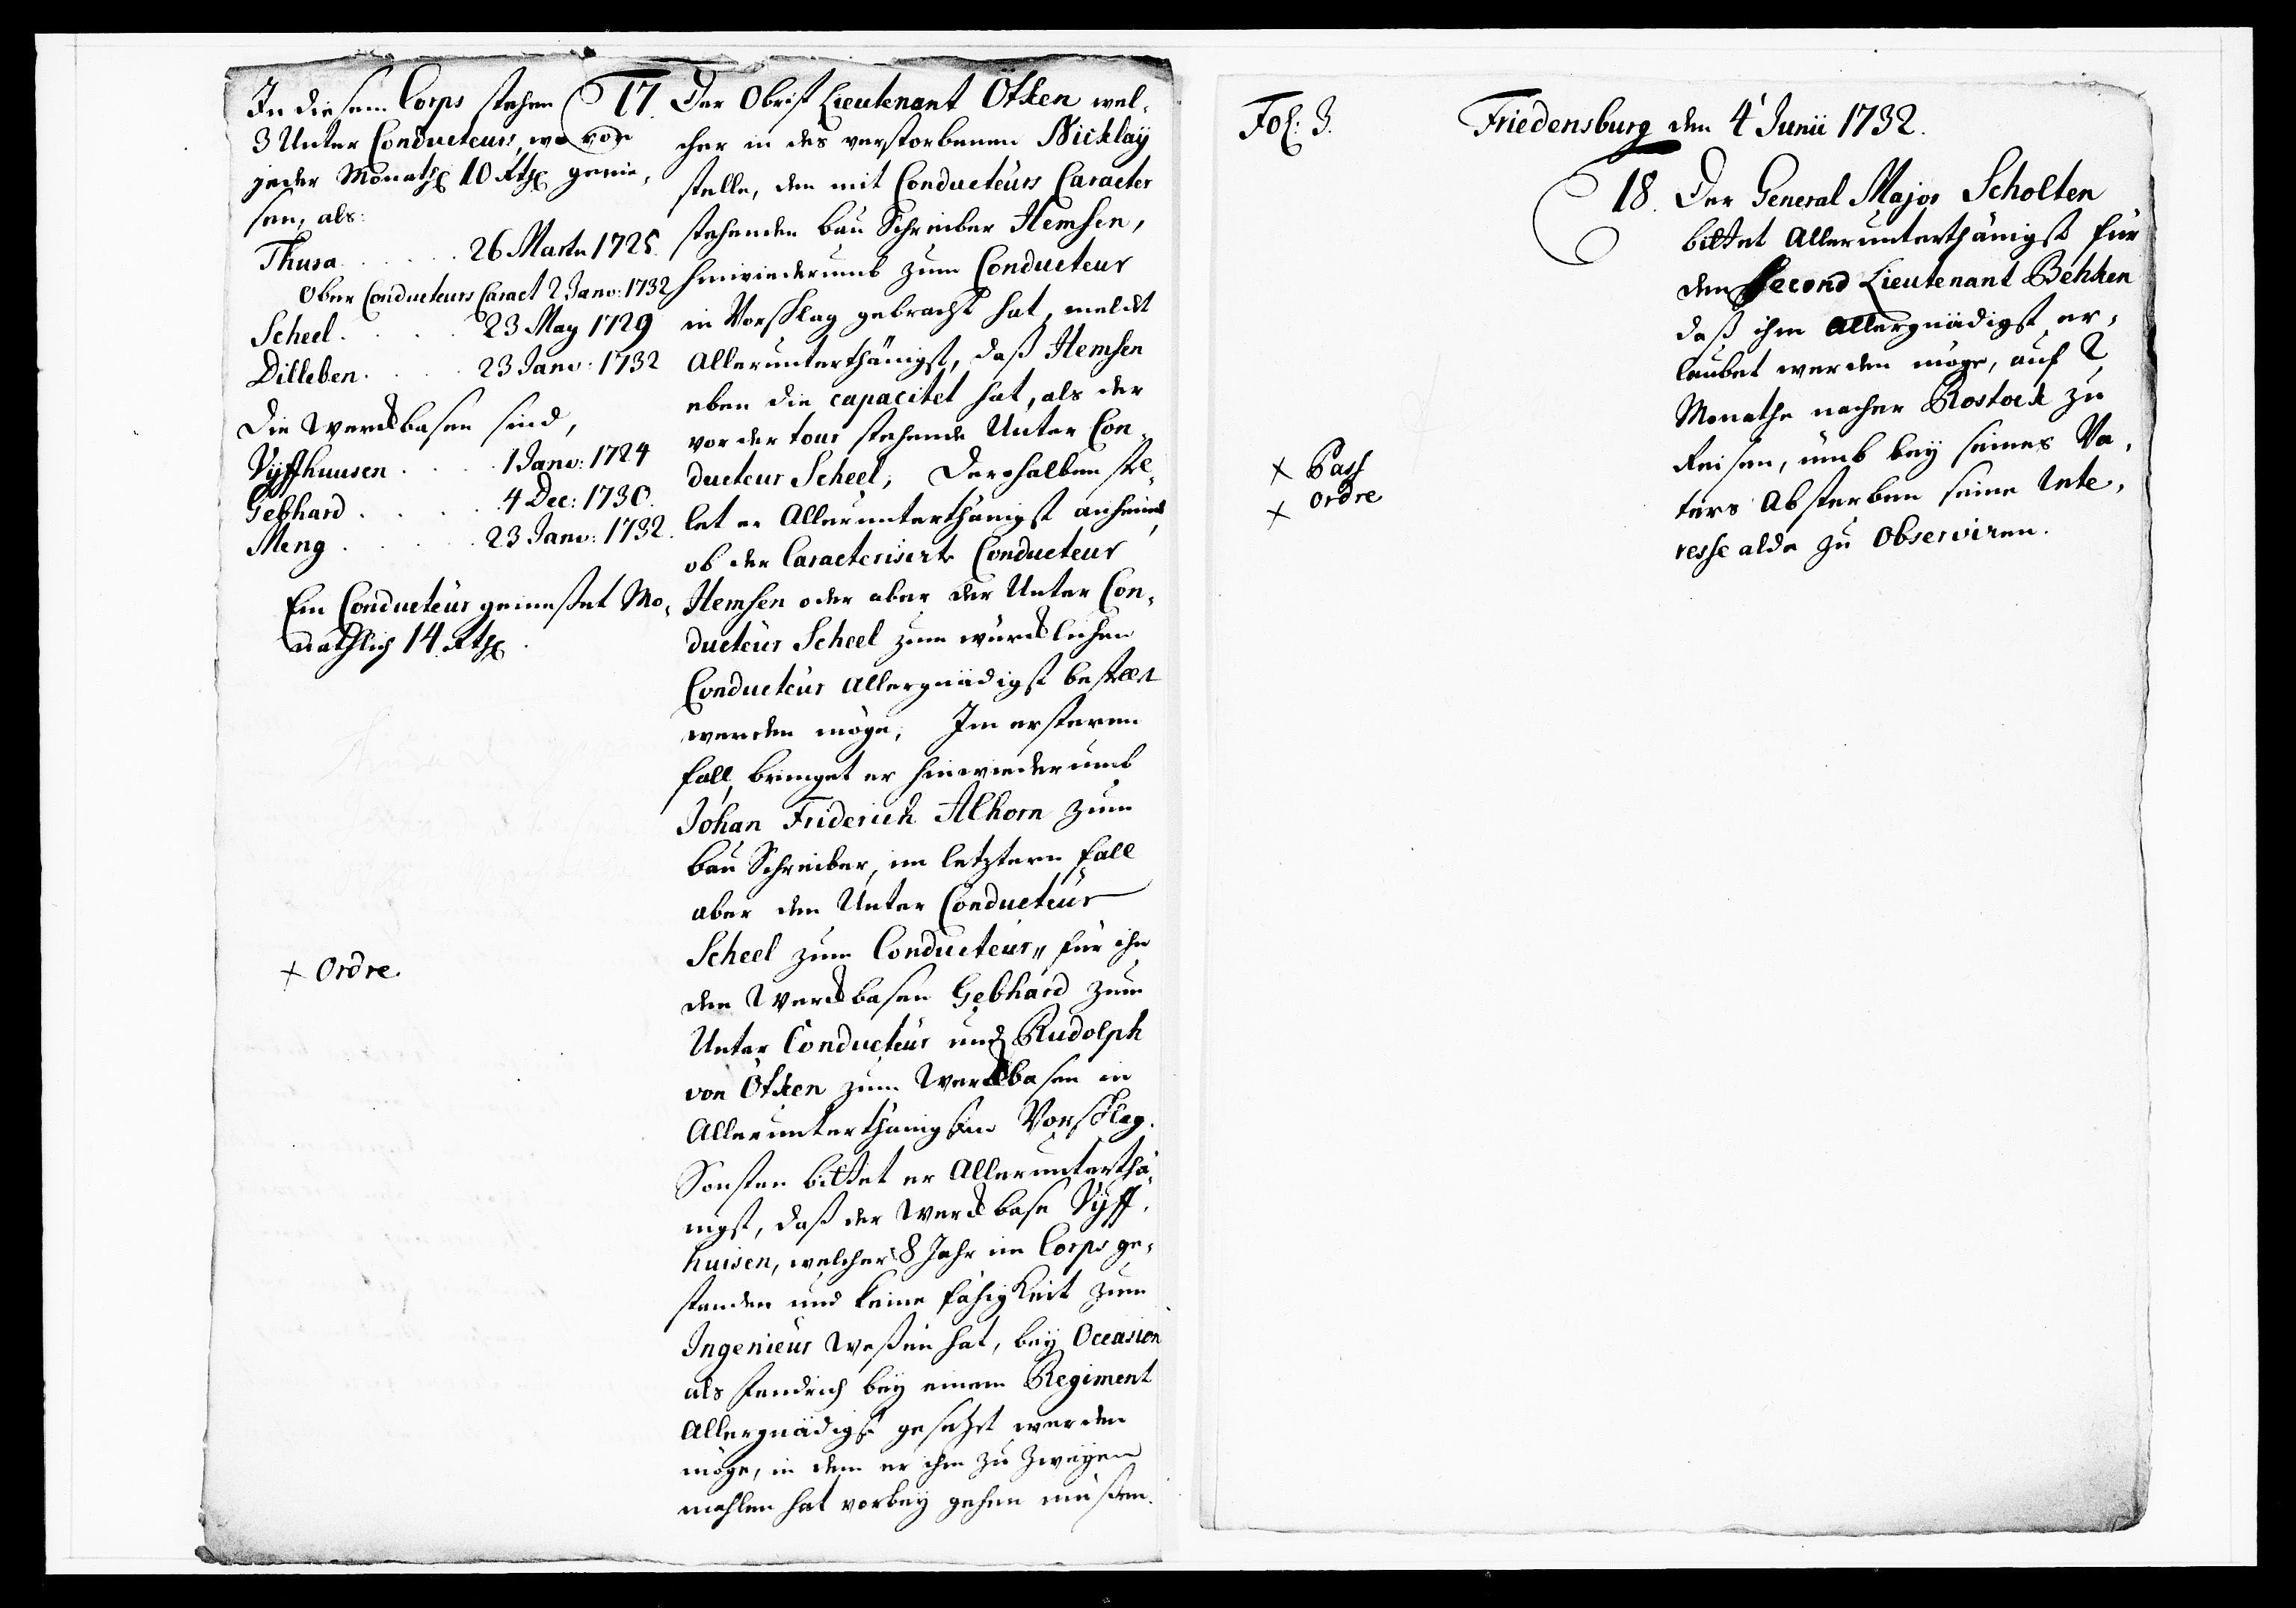 In diesem Corps stehen
3 Unter Conducteurs, wovon
jeder Monathl: 10 Rthl: genie-
sen, als:
Thura . . . . . . 26 Martii 1725.
Ober Conducteurs Caract 2 Janv: 1732
Scheel . . . . . 23 May 1729
Dilleben . . . . . 23 Janv: 1732
Die Werckbasen sind,
Vijffhuusen . . . . 1 Janv: 1724
Gebhard . . . . . 4 Dec: 1730.
Meng . . . . . 23 Janv: 1732.
Ein Conducteur geniesset Mo-
nathlich 14 Rthl:
+ Ordre.
17. Der Obrist Lieutenant Ötken wel-
cher in des verstorbenen Nicklaÿ
stelle, den mit Conducteurs Caracter
stehenden bau Schreiber Hemsen,
hinwiederumb zum Conducteur
in Vorschlag gebracht hat, meldet
Allerunterthänigst, daß Hemsen
eben die capacitet hat, als der
vor der tour stehende Unter Con-
ducteur Scheel; Derohalben stel-
let er Allerunterthänigst anheimb,
ob der Caracterisirte Conducteur
Hemsen oder aber der Unter Con-
ducteur Scheel zum würcklichen
Conducteur Allergnädigst bestellt
werden möge; Im ersteren
fall, bringet er hinwiederumb
Johan Friderich Alhorn zum
bau Schreiber, im letztern fall
aber den Unter Conducteur
Scheel zum Conducteur, für ihn
den Werckbasen Gebhard zum
Unter Conducteur und Rudolph
von Ötken zum Werckbasen in
Allerunterthänigsten Vorschlag.
Sonsten bittet er Allerunterthä-
nigst, daß der Werckbase Vijff-
huisen, welcher 8 Jahr im Corps ge-
standen und keine fähigkeit zum
Ingenieur Weßen hat, bey Occasion
als Fendrich bey einem Regiment
Allergnädigst gesetzet werden
möge, in dem er ihn zu zweyen
mahlen hat vorbey gehen müssen.
Fol: 3.
Friedensburg den 4' Junii 1732.
18. Der General Major Scholten
bittet Allerunterthänigst für
den Second Lieutenant Behken
daß ihm Allergnädigst er-
laubet werden möge, auf 2
Monathe nacher Rostock zu
Reisen, umb bey seines Va-
ters Absterben seine Inte-
resse alda zu Observiren.
+ Pass
+ Ordre